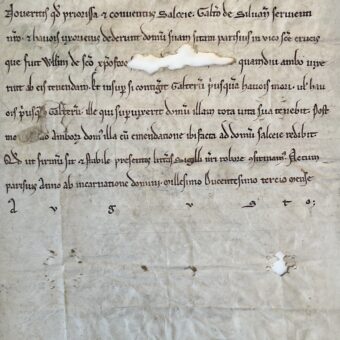 Noverint qđ priorissa & conventus Salceie. Galt̃o de Silvan̄ servienti
nr̃o. & havois uxori eius dederunt domũ suam sitam parisius in vico sc̃e crucis
que fuit Willmi de sc̃o xpoforo quamdiu ambo vixe
rint ab eis tenendam. Et insup si contigit Galterũ p̃usquã havois mori. vel hav
ois p̃usq̃ Galterũ. ille qui supvixerit domũ illam tota vita sua tenebit. Post
mo amborũ dom' illa cũ emendatione ibi facta ad domũ salceie redibit.
Qđ ut firmũ sit & stabile presentes litt̃as sigilli nr̃i robore c̃firmam'. Actum
parisius Anno ab incarnatione domini. Millesimo Ducentesimo tercio mense
A v g v s t o;